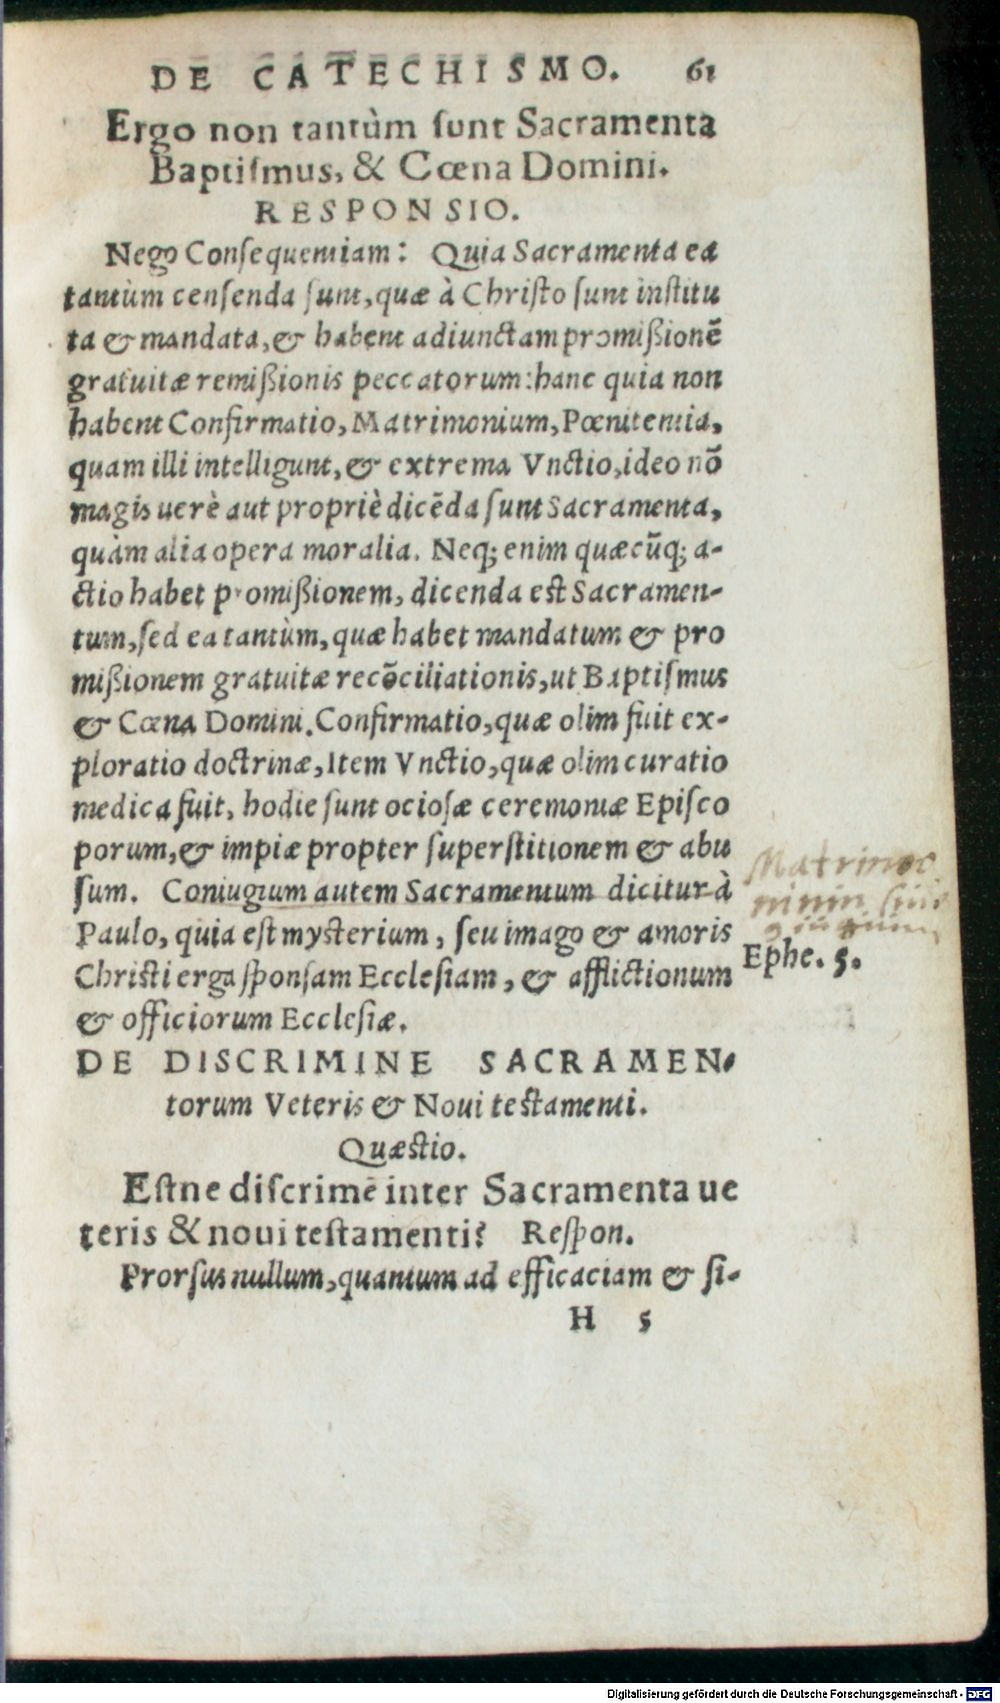 DE CATECHISMO. 61
Ergo non tantùm ſunt Sacramenta
Baptiſmus, & Cœna Domini.
RESPONSIO.
Nego Conſequentiam: Quia Sacramenta ea
tantùm cenſenda ſunt, quæ à Chriſto ſunt inſtitu
ta & mandata, & habent adiunctam promiſsionē
gratuitæ remiſsionis peccatorum: hanc quia non
habent Confirmatio, Matrimonium, Pœnitentia,
quam illi intelligunt, & extrema Vnctio, ideo nō
magis uerè aut propriè dicēda ſunt Sacramenta,
quàm alia opera moralia. Neq; enim quæcūq; a-
ctio habet promiſsionem, dicenda eſt Sacramen-
tum, ſed ea tantùm, quæ habet mandatum & pro
miſsionem gratuitæ recōciliationis, ut Baptiſmus
& Cœna Domini. Confirmatio, quæ olim fuit ex-
ploratio doctrinæ, Item Vnctio, quæ olim curatio
medica fuit, hodie ſunt ocioſæ ceremoniæ Epiſco
porum, & impiæ propter ſuperſtitionem & abu
ſum. Coniugium autem Sacramentum dicitur à
Paulo, quia eſt myſterium, ſeu imago & amoris
Chriſti erga ſponſam Eccleſiam, & afflictionum
& officiorum Eccleſiæ.
Matrimo
Ephe. 5.
DE DISCRIMINE SACRAMEN-
torum Veteris & Noui teſtamenti.
Quæſtio.
Eſtne diſcrimē inter Sacramenta ue
teris & noui teſtamenti? Reſpon.
Prorſus nullum, quantum ad efficaciam & ſi-
H 5
Digitalisierung gefördert durch die Deutsche Forschungsgemeinschaft - DFG